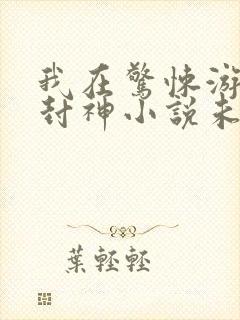 我在驚悚游
封神小說未
葉輕輕